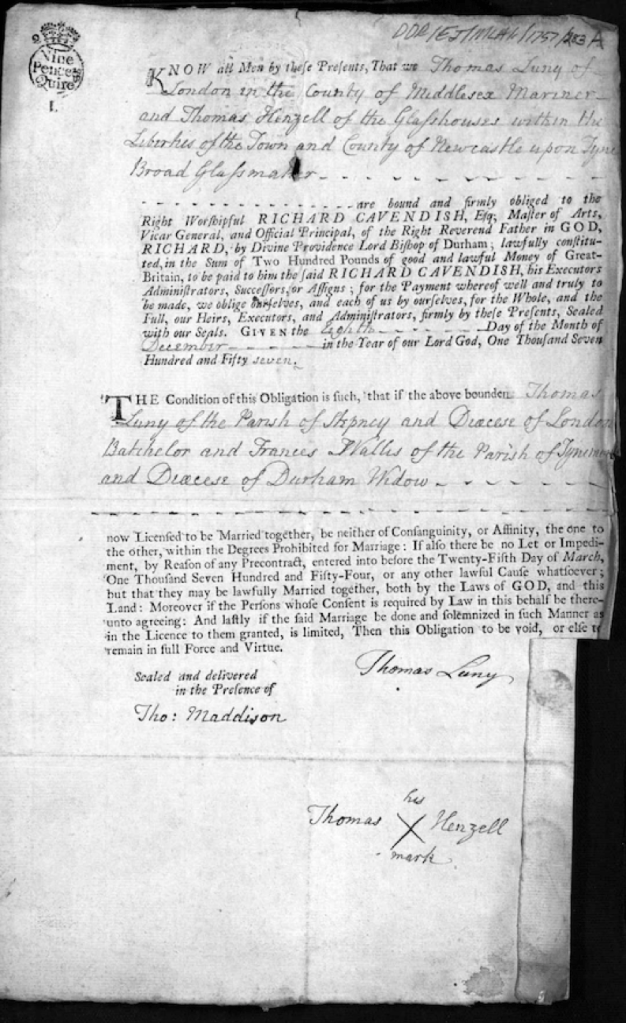 DDR/EJ/MLA/6/1757/283A
Nine
Pence p
Quire
I.
KNOW all Men by these Presents, That we Thomas Luny of
London in the County of Middlesex Mariner
and Thomas Henzell of the Glasshouses within the
Liberties of the Town and County of Newcastle upon Tyne
Broad Glassmaker
are bound and firmly obliged to the
Right Worshipful RICHARD CAVENDISH, Esq; Master of Arts,
Vicar General, and Official Principal, of the Right Reverend Father in GOD,
RICHARD, by Divine Providence Lord Bishop of Durham; lawfully constitu-
ted, in the Sum of Two Hundred Pounds of good and lawful Money of Great-
Britain, to be paid to him the said RICHARD CAVENDISH, his Executors
Administrators, Successors, or Assigns; for the Payment whereof well and truly to
be made, we oblige ourselves, and each of us by ourselves, for the Whole, and the
Full, our Heirs, Executors, and Administrators, firmly by these Presents, Sealed
with our Seals. GIVEN the eighth Day of the Month of
December in the Year of our Lord God, One Thousand Seven
Hundred and Fifty seven.
THE Condition of this Obligation is such, that if the above bounden Thomas
Luny of the Parish of Stepney and Diocese of London
Batchelor and Frances Wallis of the Parish of Tynem
and Diocese of Durham Widow
now Licensed to be Married together, be neither of Consanguinity, or Affinity, the one to
the other, within the Degrees Prohibited for Marriage: If also there be no Let or Impedi-
ment, by Reason of any Precontract, entered into before the Twenty-Fifth Day of March,
One Thousand Seven Hundred and Fifty-Four, or any other lawful Cause whatsoever;
but that they may be lawfully Married together, both by the Laws of GOD, and this
Land: Moreover if the Persons whose Consent is required by Law in this behalf be there-
unto agreeing: And lastly if the said Marriage be done and solemnized in such Manner as
in the Licence to them granted, is limited, Then this Obligation to be void, or else to
remain in full Force and Virtue.
Sealed and delivered
in the Presence of
Thomas Luny
Tho: Maddison
his
Thomas X Henzell
mark